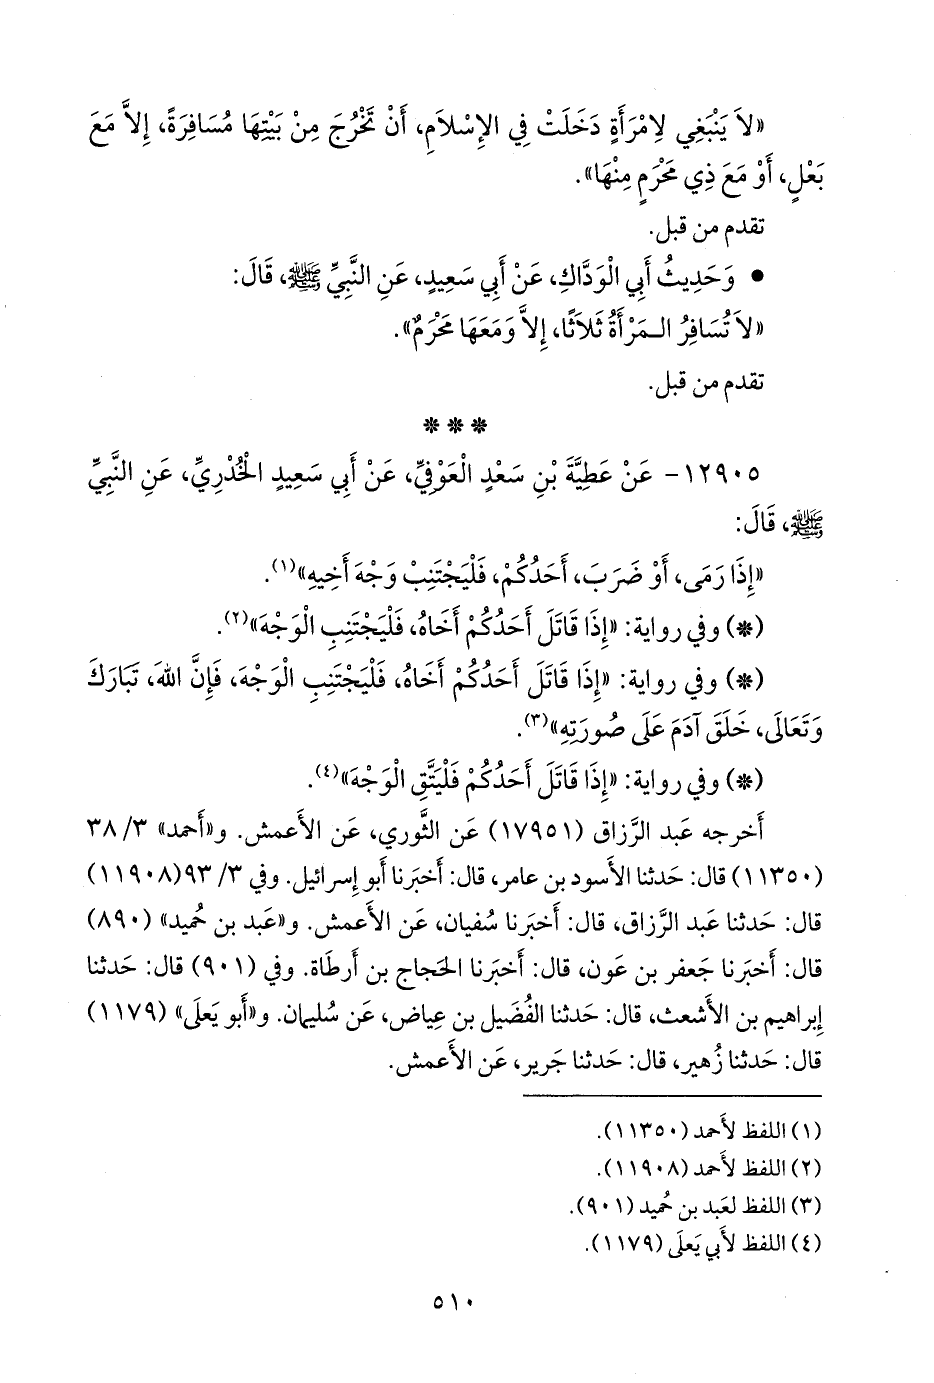 «لاَ يَنْبَغِي لِامْرَأَةٍ دَخَلَتْ فِي الإِسْلاَمِ، أَنْ تَخْرُجَ مِنْ بَيْتِهَا مُسَافِرَةً، إِلاَّ مَعَ
بَعْلٍ، أَوْ مَعَ ذِي مَحْرَمٍ مِنْهَا».
تقدم من قبل.
• وَحَدِيثُ أَبِي الْوَدَّاكِ، عَنْ أَبِي سَعِيدٍ، عَنِ النَّبِيِّ ﷺ، قَالَ:
«لاَ تُسَافِرُ الـمَرْأَةُ ثَلاَثًا، إِلاَّ وَمَعَهَا مَحْرَمٌ».
تقدم من قبل.
* * *
١٢٩٠٥ - عَنْ عَطِيَّةَ بْنِ سَعْدٍ الْعَوْفِيِّ، عَنْ أَبِي سَعِيدٍ الْخُدْرِيِّ، عَنِ النَّبِيِّ
ﷺ، قَالَ:
«إِذَا رَمَى، أَوْ ضَرَبَ، أَحَدُكُمْ، فَلْيَجْتَنِبْ وَجْهَ أَخِيهِ»(١).
(*) وفي رواية: «إِذَا قَاتَلَ أَحَدُكُمْ أَخَاهُ، فَلْيَجْتَنِبِ الْوَجْهَ»(٢).
(*) وفي رواية: «إِذَا قَاتَلَ أَحَدُكُمْ أَخَاهُ، فَلْيَجْتَنِبِ الْوَجْهَ، فَإِنَّ اللهَ، تَبَارَكَ
وَتَعَالَى، خَلَقَ آدَمَ عَلَى صُورَتِهِ»(٣).
(*) وفي رواية: «إِذَا قَاتَلَ أَحَدُكُمْ فَلْيَتَّقِ الْوَجْهَ»(٤).
أَخرجه عَبد الرَّزاق (١٧٩٥١) عَن الثَّوري، عَن الأَعمش. و«أَحمد» ٣/ ٣٨
(١١٣٥٠) قال: حَدثنا الأَسود بن عامر، قال: أَخبَرنا أَبو إِسرائيل. وفي ٣/ ٩٣(١١٩٠٨)
قال: حَدثنا عَبد الرَّزاق، قال: أَخبَرنا سُفيان، عَن الأَعمش. و«عَبد بن حُميد» (٨٩٠)
قال: أَخبَرنا جَعفر بن عَون، قال: أَخبَرنا الحَجاج بن أَرطَاة. وفي (٩٠١) قال: حَدثنا
إِبراهيم بن الأَشعث، قال: حَدثنا الفُضَيل بن عِياض، عَن سُليمان. و«أَبو يَعلَى» (١١٧٩)
قال: حَدثنا زُهير، قال: حَدثنا جَرير، عَن الأَعمش.
(١) اللفظ لأَحمد (١١٣٥٠).
(٢) اللفظ لأَحمد (١١٩٠٨).
(٣) اللفظ لعَبد بن حُميد (٩٠١).
(٤) اللفظ لأَبي يَعلَى (١١٧٩).
٥١٠